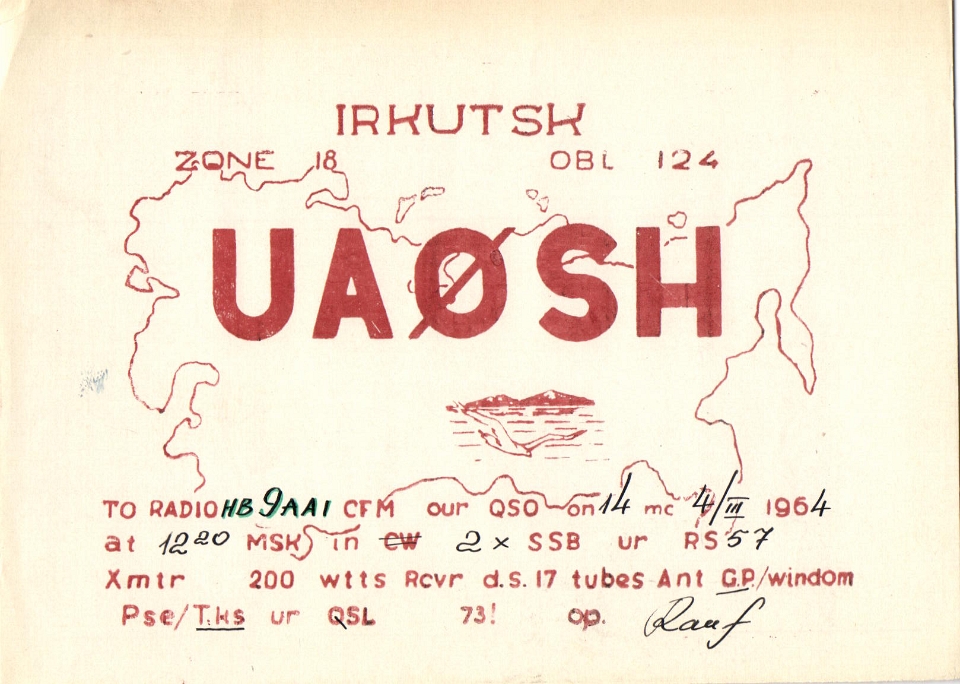 IRKUTSK
ZONE 18 OBL 124
UAØSH
TO RADIO HB9AAI CFM our QSO on 14 mc 4/III 1964
at 12 20 MSK in CW 2 x SSB ur RS 57
Xmtr 200 wtts Rcvr d.s. 17 tubes Ant G.P./windom
Pse/T.ks ur QSL 73! op. Rauf